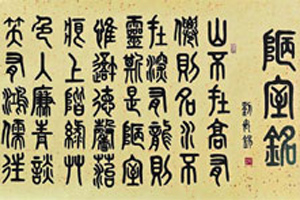 陋室銘
劉禹錫
山不在高有
僊則名水不
在深有龍則
靈斯是陋室
惟吾德馨苔
痕上階綠艸
色入簾青談
笑有鴻儒往